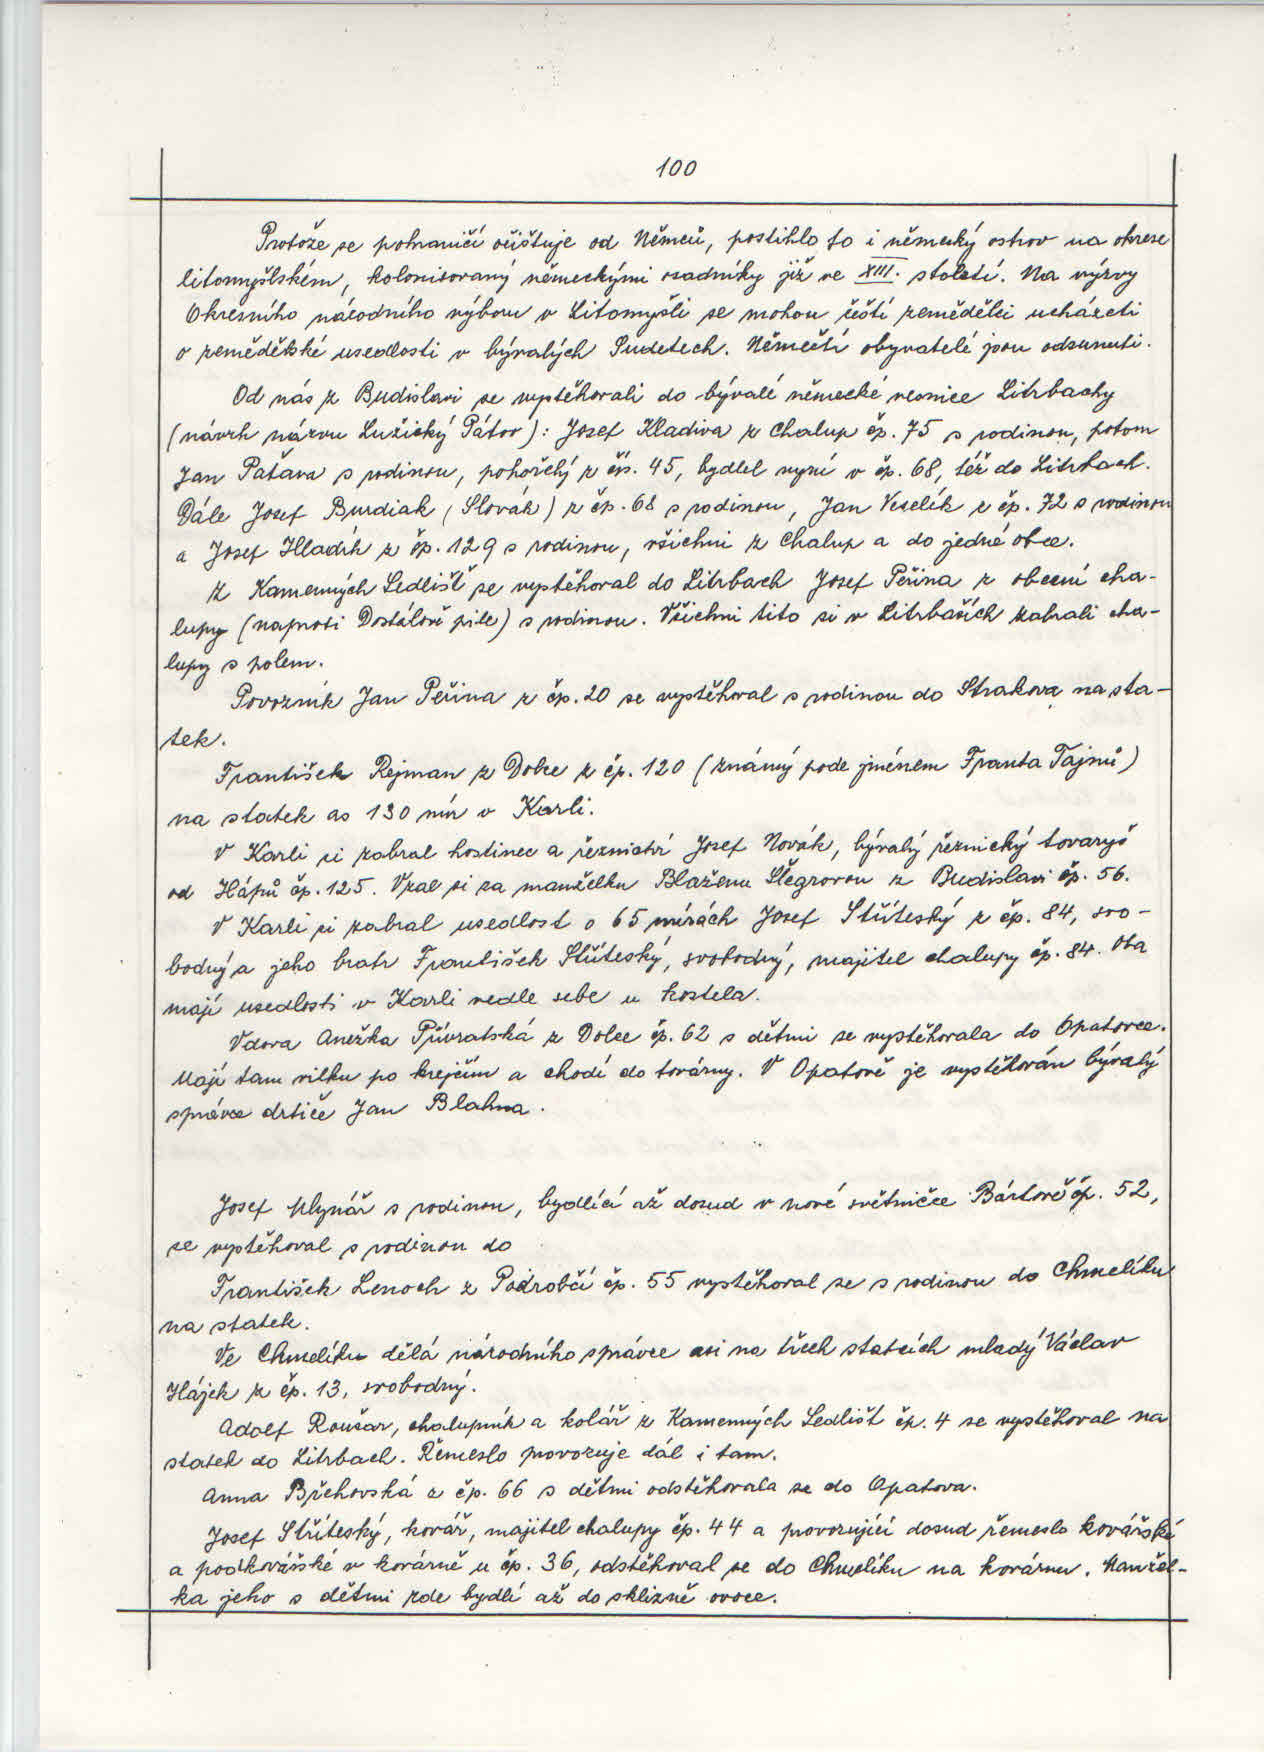 100
Protože se pohraničí očišťuje od Němců, postihlo to i německý ostrov na okrese
litomyšlském, kolonisovaný německými osadníky již ve XIII. století. Na výzvy
Okresního národního výboru v Litomyšli se mohou čeští zemědělci ucházeti
o zemědělské usedlosti v bývalých Sudetech. Němečtí obyvatelé jsou odsunuti.
Od nás z Budislavi se vystěhovali do bývalé německé vesnice Litrbachy
(návrh názvu Lužický Pátov): Josef Kladiva z Chalup čp. 75 s rodinou, potom
Jan Paťava s rodinou, pohořelý z čís. 45, bydlel nyní v čp. 68, též do Litrbach.
Dále Josef Burdiak (Slovák) z čp. 68 s rodinou, Jan Veselík z čp. 72 s rodinou
a Josef Hladík z čp. 129 s rodinou, všichni z Chalup a do jedné obce.
Z Kamenných Sedlišť se vystěhoval do Litrbach Josef Peřina z obecní cha-
lupy (naproti Dostálově pile) s rodinou. Všichni tito si v Litrbaších zabrali cha-
lupy s polem.
Povozník Jan Peřina z čp. 20 se vystěhoval s rodinou do Strakova na sta-
tek.
František Rejman z Dolce z čp. 120 (známý pode jménem Franta Tajnů)
na statek as 130 mír v Karli.
V Karli si zabral hostinec a řeznictví Josef Novák, bývalý řeznický tovaryš
od Hápů čp. 125. Vzal si za manželku Blaženu Šlegrovou z Budislavi čp. 56.
V Karli si zabral usedlost o 65 mírách Josef Stříteský z čp. 84, svo-
bodný a jeho bratr František Stříteský, svobodný, majitel chalupy čp. 84. Oba
mají usedlosti v Karli vedle sebe u kostela.
Vdova Anežka Přívratská z Dolce čp. 62 s dětmi se vystěhovala do Opatovce.
Mají tam vilku po krejčím a chodí do továrny. V Opatově je vystěhován bývalý
správce drtiče Jan Blahna.
Josef Mlynář s rodinou, bydlící až dosud v nové světničce Bártově čp. 52,
se vystěhoval s rodinou do
František Lenoch z Podrobčí čp. 55 vystěhoval se s rodinou do Chmelíku
na statek.
Ve Chmelíku dělá národního správce asi na třech statcích mladý Václav
Hájek z čp. 13, svobodný.
Adolf Roušar, chalupník a kolář z Kamenných Sedlišť čp. 4 se vystěhoval na
statek do Litrbach. Řemeslo provozuje dál i tam.
Anna Břehovská z čp. 66 s dětmi odstěhovala se do Opatova.
Josef Stříteský, kovář, majitel chalupy čp. 44 a provozující dosud řemeslo kovářské
a podkovářské v kovárně u čp. 36, odstěhoval se do Chmelíku na kovárnu. Manžel-
ka jeho s dětmi zde bydlí až do sklizně ovoce.